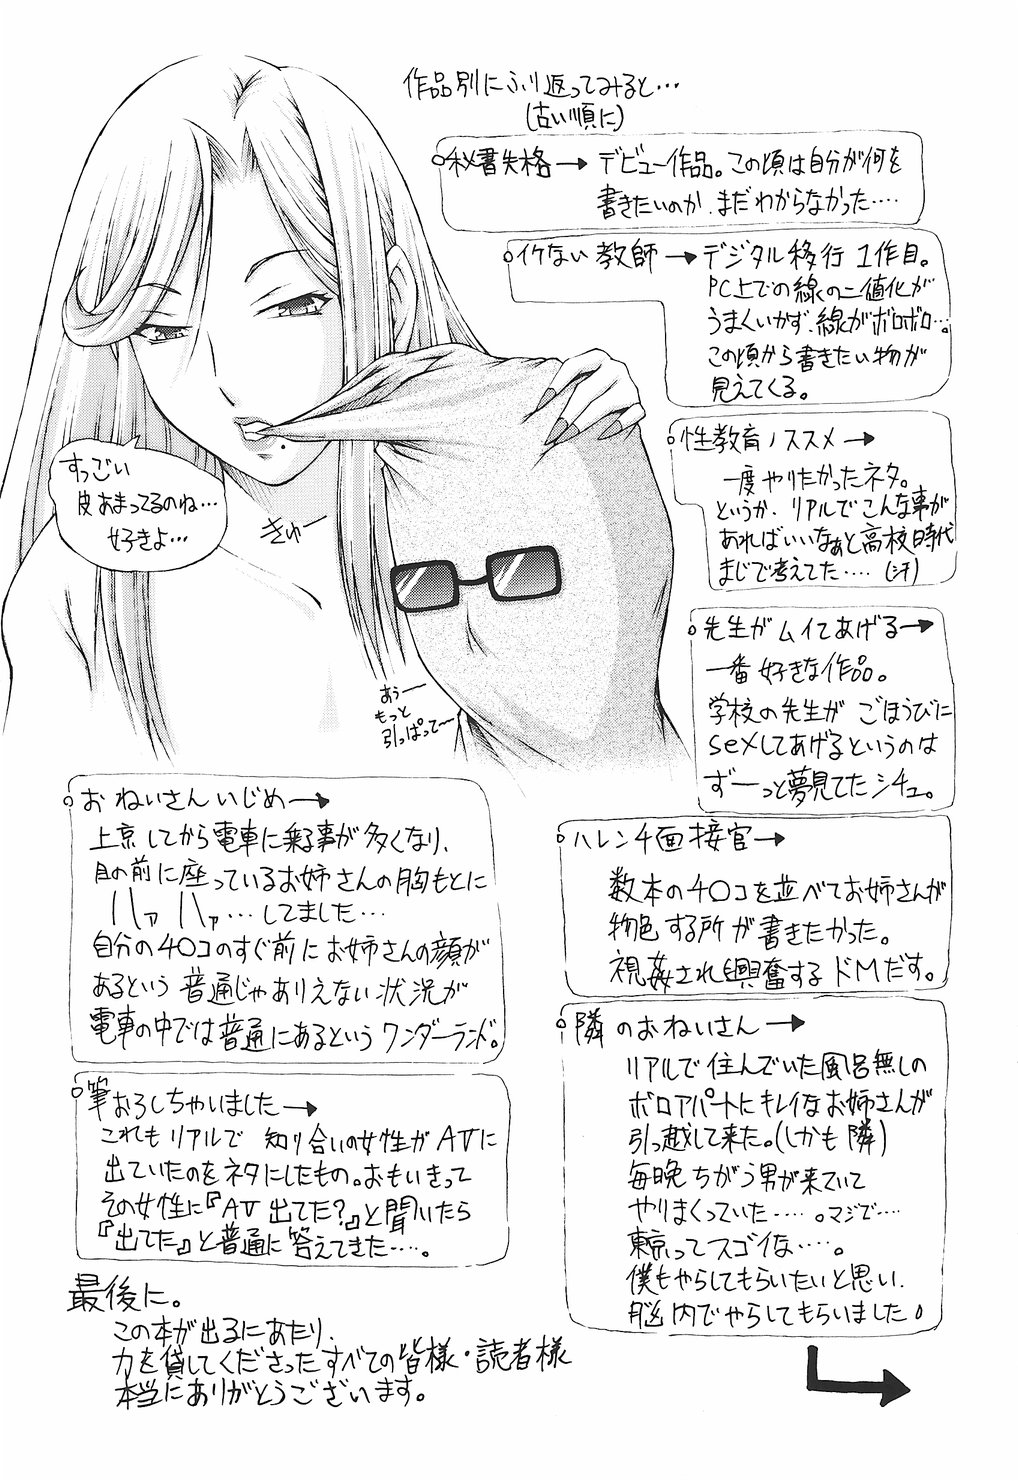 作品別にふり返ってみると…
(古い順に)
秘書失格→ デビュー作品。この頃は自分が何を
書きたいのか、まだわからなかった‥‥
イケない教師→デジタル移行1作目。
PC上での線の二値化が
うまくいかず、線がボロボロ…。
この頃から書きたい物が
見えてくる。
性教育ノススメ→
一度やりたかったネタ。
というか、リアルでこんな事が
あればいいなぁと高校時代
まじで考えてた‥‥(汗)
先生がムイてあげる→
一番好きな作品。
学校の先生がごほうびに
sexしてあげるというのは
ずーっと夢見てたシチュ。
すっごい
皮あまってるのね…
好きよ…
きゅー
あぅー
もっと
引っぱって〜
おねいさんいじめ→
上京してから電車に乗る事が多くなり、
目の前に座っているお姉さんの胸もとに
ハァ ハァ…してました…
自分のチ○コのすぐ前にお姉さんの顔が
あるという普通じゃありえない状況が
電車の中では普通にあるというワンダーランド。
ハレンチ面接官→
数本のチ○コを並べてお姉さんが
物色する所が書きたかった。
視姦され興奮するドMだす。
筆おろしちゃいました→
これもリアルで知り合いの女性がAVに
出ていたのをネタにしたもの。おもいきって
その女性に『AV出てた?』と聞いたら
『出てた』と普通に答えてきた‥‥。
隣のおねいさん→
リアルで住んでいた風呂無しの
ボロアパートにキレイなお姉さんが
引っ越して来た。(しかも隣)
毎晩ちがう男が来ていて
やりまくっていた‥‥。マジで‥‥
東京ってスゴイな‥‥。
僕もやらしてもらいたいと思い、
脳内でやらしてもらいました。
最後に。
この本が出るにあたり、
力を貸してくださったすべての皆様・読者様
本当にありがとうございます。